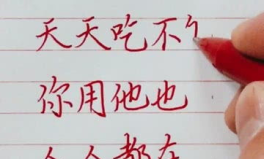 天天吃不
你用他也
人人都在